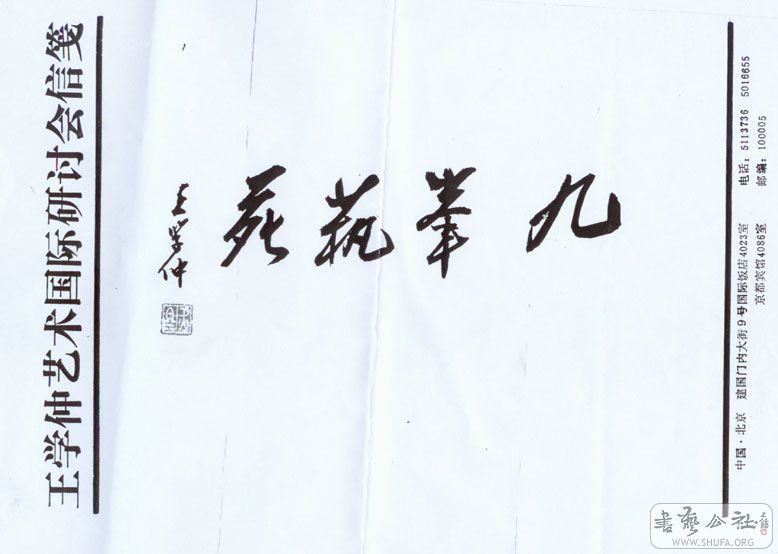 王学仲艺术国际研讨会信笺
九峯蓺苑
王学仲
中国·北京 建国门内大街9号国际饭店4023室 电话：5113736 5016655
京都宾馆4086室 邮编：100005
書藝公社
WWW.SHUFA.ORG